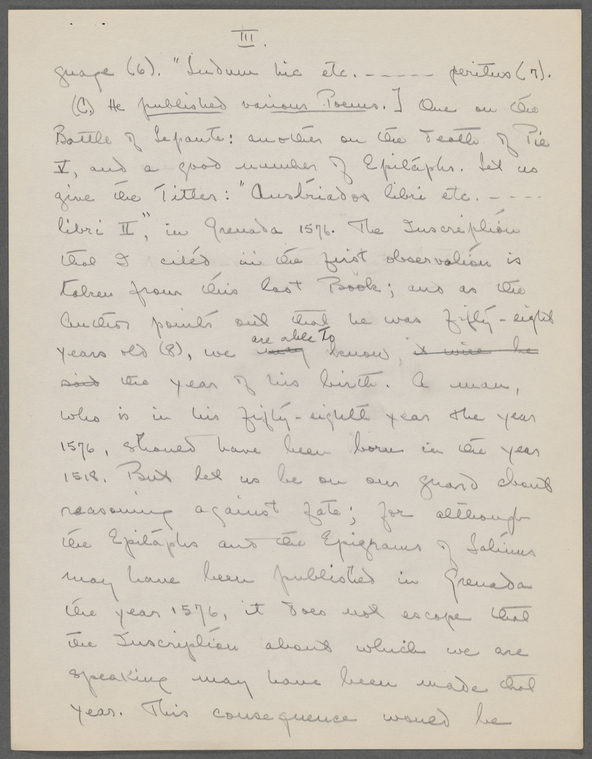 III.
guage (6). "Ludum hic etc. ----- peritus (7).
(C) He published various Poems.] One on the
Battle of Lepante: another on the death of Pie
V, and a good number of Epitaphs. Let us
give the Titles: "Austriados libri etc. ----
libri II", in Grenada 1576. The Inscription
that I cited in the first observation is
taken from this last Book; and as the
Author points out that he was fifty-eight
are able to
years old (8), we may know, it will be
said the year of his birth. A man,
who is in his fifty-eighth year the year
1576, should have been born in the year
1518. But let us be on our guard about
reasoning against fate; for although
the Epitaphs and the Epigrams of Latinus
may have been published in Grenada
the year 1576, it does not escape that
the Inscription about which we are
speaking may have been made that
year. This consequence would be